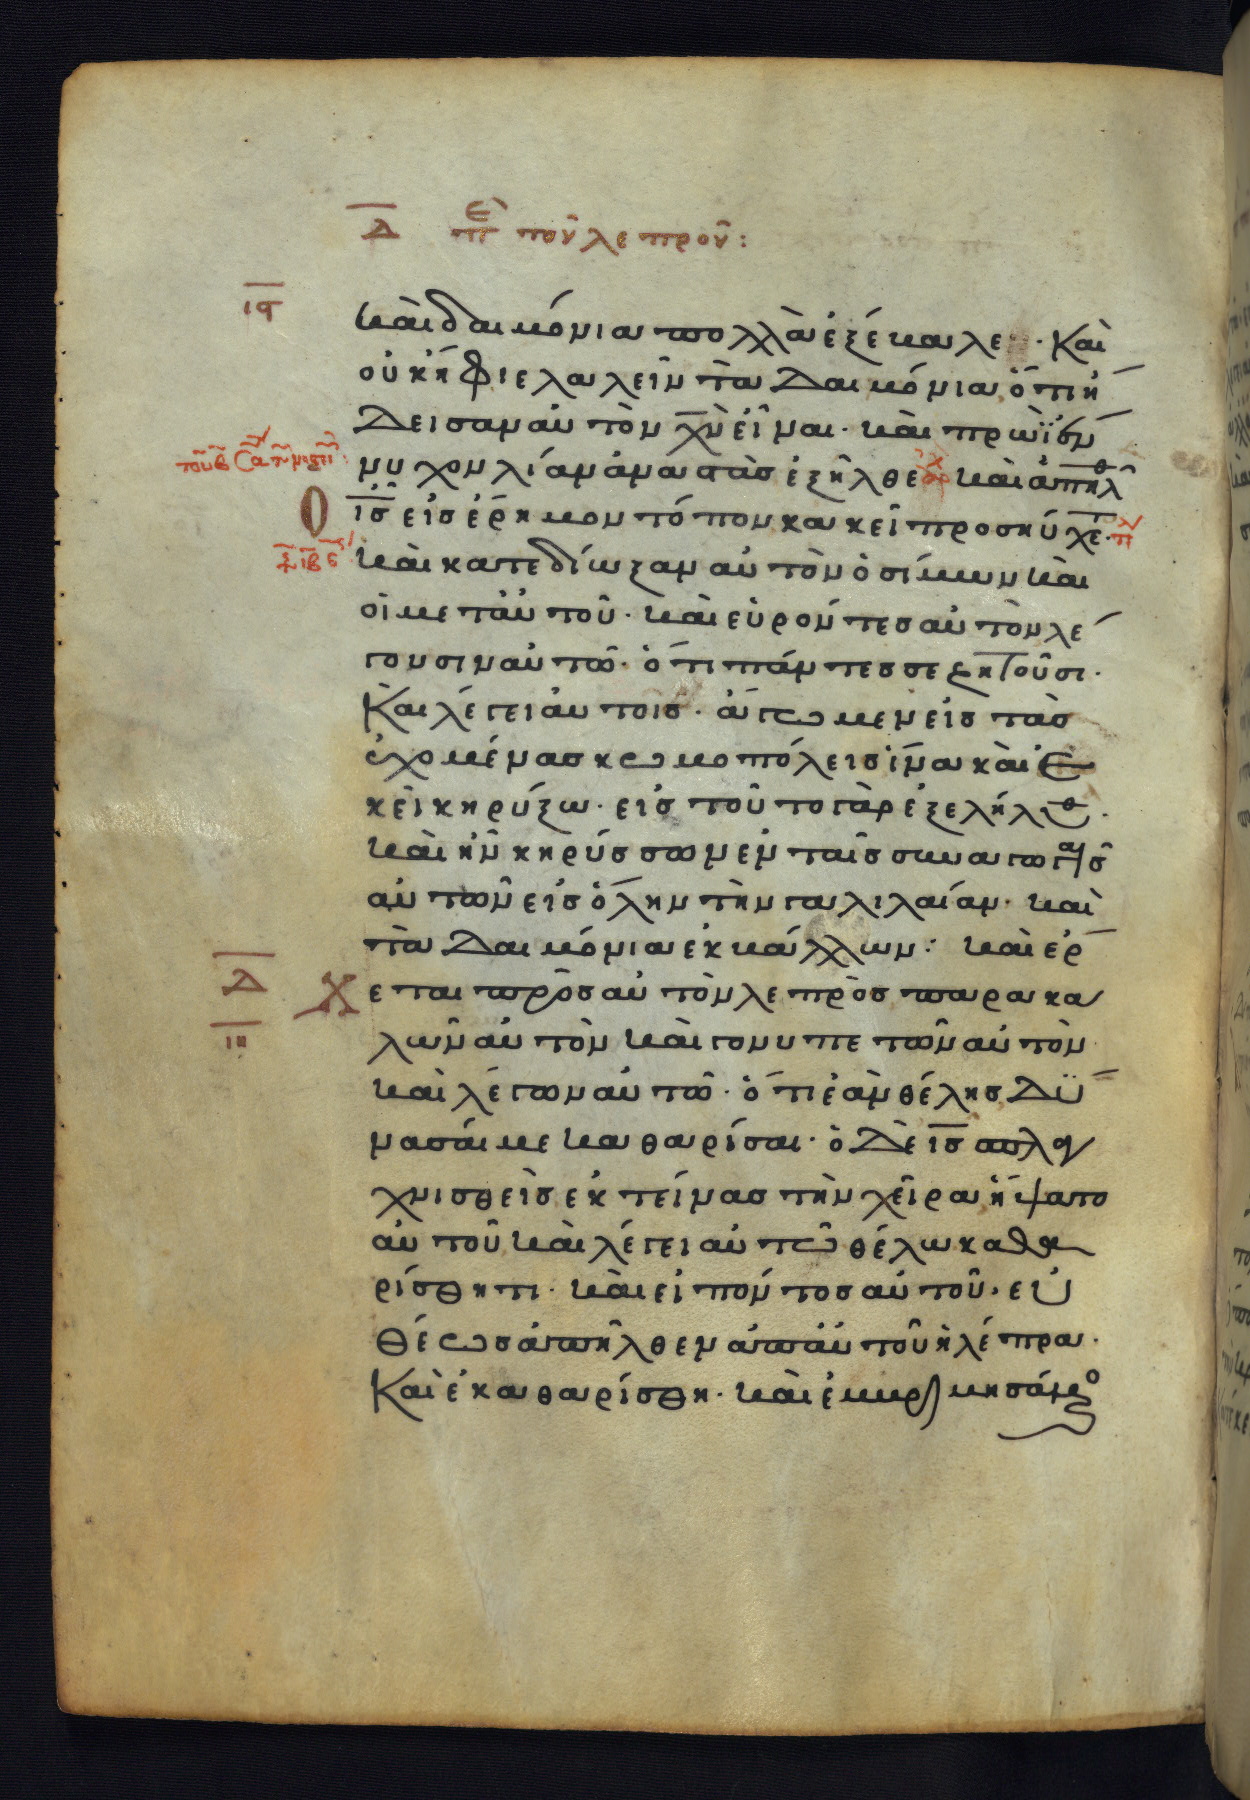 Δ πε τοῦ λεπροῦ:
ιϛ
καὶ δαιμόνια πολλὰ ἐξέβαλε. Καὶ
οὐκ ἤφιε λαλεῖν τὰ δαιμόνια ὅτι ἤ
δεισαν αὐτὸν χν εἶναι. καὶ πρωῒ ἐν
νυχον λίαν ἀναστὰς ἐξῆλθε καὶ ἀπῆλθ
ις εἰς ἔρημον τόπον κακεῖ προσηύχε.
καὶ κατεδίωξαν αὐτὸν ὁ σίμων καὶ
οἱ μετ αὐτοῦ. καὶ εὑρόντες αὐτὸν λέ
γουσιν αὐτῶ. ὅτι πάντες σε ζητοῦσι.
Καὶ λέγει αὐτοῖς. ἄγωμεν εἰς τὰς
ἐχομένας κωμοπόλεις ἵνα καὶ ἐ
κεῖ κηρύξω. εἰς τοῦτο γὰρ ἐξελήλυθ.
καὶ ἦν κηρύσσων ἐν ταῖς συναγωγαῖς
αὐτῶν εἰς ὅλην τὴν γαλιλαίαν. καὶ
τὰ δαιμόνια ἐκβάλλων: καὶ ἔρ
Δ χεται πρὸς αὐτὸν λεπρὸς παρακα
ιη λῶν αὐτὸν καὶ γονυπετῶν αὐτὸν
καὶ λέγων αὐτῶ. ὅτι ἐὰν θέλης δύ
νασαί με καθαρίσαι. ὁ δὲ ις σπλα
χνισθεὶς ἐκτείνας τὴν χεῖρα ἥψατο
αὐτοῦ καὶ λέγει αὐτῶ θέλω καθα
ρίσθητι. καὶ εἰπόντος αὐτοῦ. εὐ
θέως ἀπῆλθεν ἀπ αὐτοῦ ἡ λέπρα.
Καὶ ἐκαθαρίσθη. καὶ ἐμβριμησάμενο